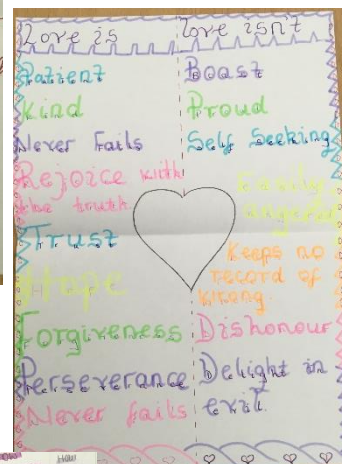 Love is
Patient
Kind
Never Fails
Rejoice with
the truth
Trust
Hope
Forgiveness
Perseverance
Never fails
Love isn't
Boast
Proud
Self Seeking
Easily
angered
Keeps no
record of
wrong.
Dishonour
Delight in
evil